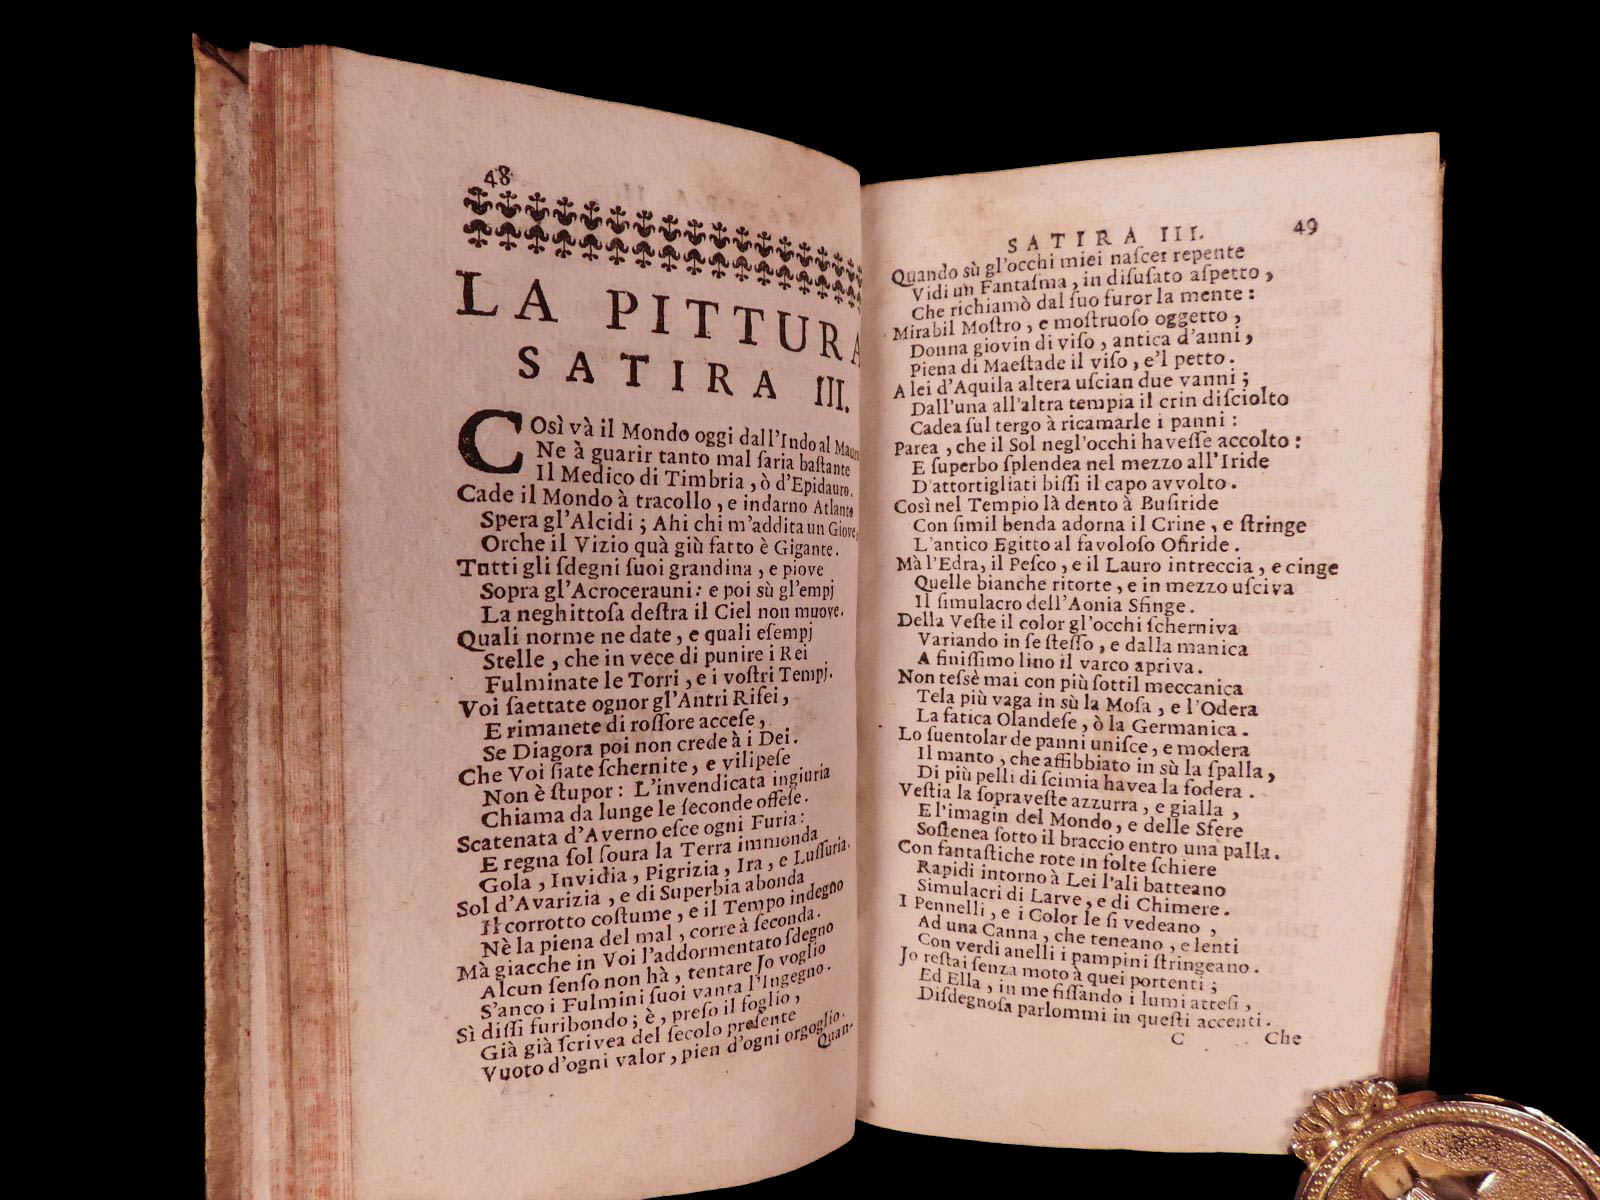 48
LA PITTURA
SATIRA III.
COsì và il Mondo oggi dall'Indo al Mau
Ne à guarir tanto mal saria bastante
Il Medico di Timbria, ò d'Epidauro.
Cade il Mondo à tracollo, e indarno Atlante
Spera gl'Alcidi; Ahi chi m'addita un Giove,
Orche il Vizio quà giù fatto è Gigante.
Tutti gli sdegni suoi grandina, e piove
Sopra gl'Acrocerauni: e poi sù gl'empj
La neghittosa destra il Ciel non muove.
Quali norme ne date, e quali esempj
Stelle, che in vece di punire i Rei
Fulminate le Torri, e i vostri Tempj.
Voi saettate ognor gl'Antri Rifei,
E rimanete di rossore accese,
Se Diagora poi non crede à i Dei.
Che Voi siate schernite, e vilipese
Non è stupor: L'invendicata ingiuria
Chiama da lunge le seconde offese.
Scatenata d'Averno esce ogni Furia:
E regna sol soura la Terra immonda
Gola, Invidia, Pigrizia, Ira, e Lussuria.
Sol d'Avarizia, e di Superbia abonda
Il corrotto costume, e il Tempo indegno
Nè la piena del mal, corre à seconda.
Mà giacche in Voi l'addormentato sdegno
Alcun senso non hà, tentare Jo voglio
S'anco i Fulmini suoi vanta l'Ingegno.
Sì dissi furibondo; è, preso il foglio,
Già già scrivea del secolo presente
Vuoto d'ogni valor, pien d'ogni orgoglio.
Quan-
SATIRA III. 49
Quando sù gl'occhi miei nascer repente
Vidi un Fantasma, in disusato aspetto,
Che richiamò dal suo furor la mente:
Mirabil Mostro, e mostruoso oggetto,
Donna giovin di viso, antica d'anni,
Piena di Maestade il viso, e'l petto.
A lei d'Aquila altera uscian due vanni;
Dall'una all'altra tempia il crin disciolto
Cadea sul tergo à ricamarle i panni:
Parea, che il Sol negl'occhi havesse accolto:
E superbo splendea nel mezzo all'Iride
D'attortigliati bissi il capo avvolto.
Così nel Tempio là dento à Busiride
Con simil benda adorna il Crine, e stringe
L'antico Egitto al favoloso Osiride.
Mà l'Edra, il Pesco, e il Lauro intreccia, e cinge
Quelle bianche ritorte, e in mezzo usciva
Il simulacro dell'Aonia Sfinge.
Della Veste il color gl'occhi scherniva
Variando in se stesso, e dalla manica
A finissimo lino il varco apriva.
Non tessè mai con più sottil meccanica
Tela più vaga in sù la Mosa, e l'Odera
La fatica Olandese, ò la Germanica.
Lo suentolar de panni unisce, e modera
Il manto, che affibbiato in sù la spalla,
Di più pelli di scimia havea la fodera.
Vestia la sopraveste azzurra, e gialla,
E l'imagin del Mondo, e delle Sfere
Sostenea sotto il braccio entro una palla.
Con fantastiche rote in folte schiere
Rapidi intorno à Lei l'ali batteano
Simulacri di Larve, e di Chimere.
I Pennelli, e i Color le si vedeano,
Ad una Canna, che teneano, e lenti
Con verdi anelli i pampini stringeano.
Jo restai senza moto à quei portenti;
Ed Ella, in me fissando i lumi attesi,
Disdegnosa parlommi in questi accenti.
C Che